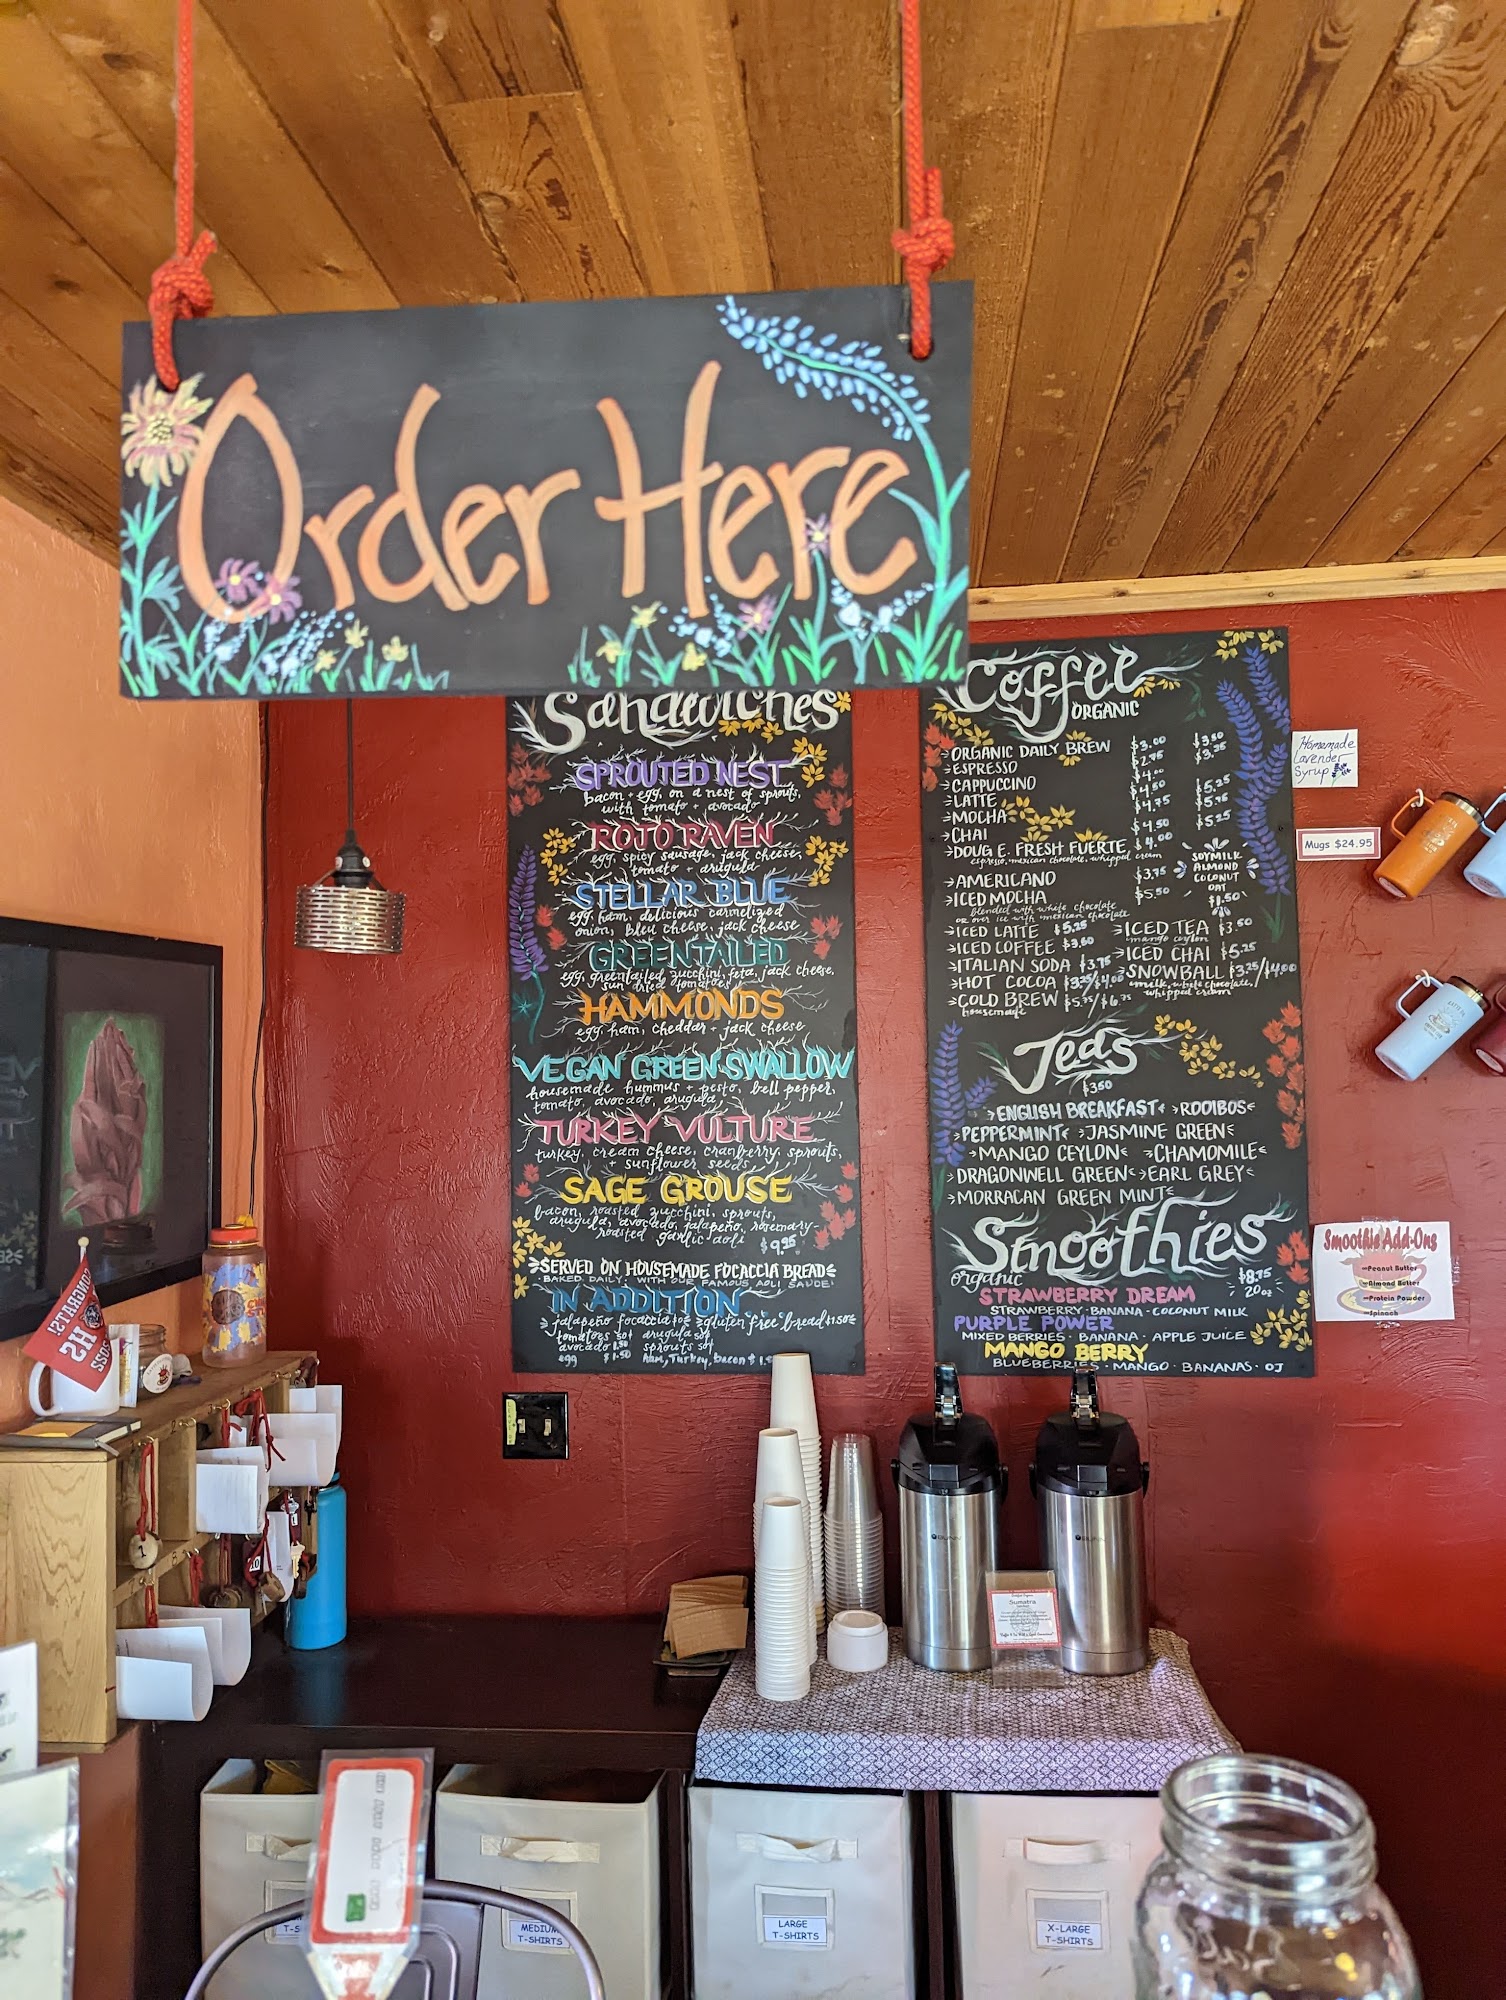 Order Here
Sandwiches
SPROUTED NEST
bacon + egg, on a nest of sprouts,
with tomato + avocado
ROJO RAVEN
egg, spicy sausage, jack cheese,
tomato + arugula
STELLAR BLUE
egg, ham, delicious carmelized
onion, bleu cheese, jack cheese
GREENTAILED
egg, greentailed zucchini, feta, jack cheese,
sun dried tomatoes
HAMMONDS
egg, ham, cheddar + jack cheese
VEGAN GREEN SWALLOW
housemade hummus + pesto, bell pepper,
tomato, avocado, arugula
TURKEY VULTURE
turkey, cream cheese, cranberry, sprouts,
+ sunflower seeds
SAGE GROUSE
bacon, roasted zucchini, sprouts,
arugula, avocado, jalapeño, rosemary-
roasted garlic aoli $9.95
SERVED ON HOUSEMADE FOCACCIA BREAD
BAKED DAILY. WITH OUR FAMOUS AOLI SAUCE!
IN ADDITION
jalapeño focaccia gluten free bread $1.50
tomatoes 50¢ arugula 50¢
avocado 1.50 sprouts 50¢
egg $1.50 Ham, Turkey, bacon
Coffee
ORGANIC
ORGANIC DAILY BREW $3.00 $3.50
ESPRESSO $2.75
CAPPUCCINO $4.00
LATTE $4.50 $5.25
MOCHA $4.75
CHAI $4.50 $5.25
DOUG E. FRESH FUERTE $4.00
espresso, mexican chocolate, whipped cream
AMERICANO $3.75
ICED MOCHA $5.50
blended with white chocolate
or over ice with mexican chocolate
SOYMILK
ALMOND
COCONUT
OAT
$1.50
ICED LATTE $5.25
ICED COFFEE $3.60
ITALIAN SODA $3.75
HOT COCOA $3.25/$4.00
COLD BREW
housemade
ICED TEA $3.50
mango ceylon
ICED CHAI $5.25
SNOWBALL $3.25/$4.00
milk, white chocolate,
whipped cream
Teas
$3.50
ENGLISH BREAKFAST ROOIBOS
PEPPERMINT JASMINE GREEN
MANGO CEYLON CHAMOMILE
DRAGONWELL GREEN EARL GREY
MORRACAN GREEN MINT
Smoothies
organic
$8.75
20oz
STRAWBERRY DREAM
STRAWBERRY · BANANA · COCONUT MILK
PURPLE POWER
MIXED BERRIES · BANANA · APPLE JUICE
MANGO BERRY
BLUEBERRIES · MANGO · BANANAS · OJ
Homemade
Lavender
Syrup
Mugs $24.95
Smoothie Add-Ons
Peanut Butter
Almond Butter
Protein Powder
Spinach
CONGRATS!
HS
BUNN
BUNN
Sumatra
1
MEDIUM
T-SHIRTS
LARGE
T-SHIRTS
X-LARGE
T-SHIRTS